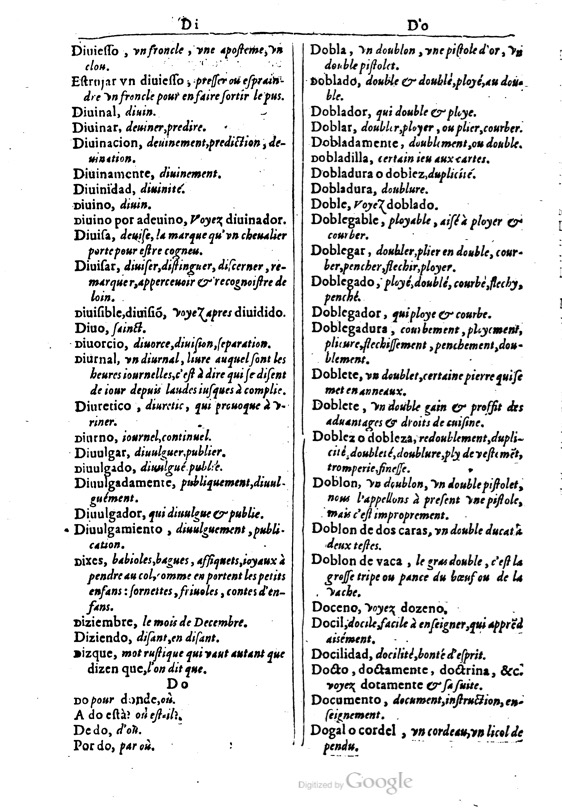 Di
Do
Diuiesso, vn froncle, vne aposteme, vn
clou.
Estrujar vn diuiesso, presser ou esprain-
dre vn froncle pour en faire sortir le pus.
Diuinal, diuin.
Diuinar, deuiner, predire.
Diuinacion, deuinement, prediction, de-
uination.
Diuinamente, diuinement.
Diuinidad, diuinité.
Diuino, diuin.
Diuino por adeuino, Voyez diuinador.
Diuisa, deuise, la marque qu'vn cheualier
porte pour estre cogneu.
Diuisar, diuiser, distinguer, discerner, re-
marquer, apperceuoir & recognoistre de
loin.
Diuisible, diuisiō, voyez apres diuidido.
Diuo, sainct.
Diuorcio, diuorce, diuision, separation.
Diurnal, vn diurnal, liure auquel sont les
heures iournelles, c'est à dire qui se disent
de iour depuis laudes iusques à complie.
Diuretico, diuretic, qui prouoque à v-
riner.
Diurno, iournel, continuel.
Diuulgar, diuulguer, publier.
Diuulgado, diuulgué, publié.
Diuulgadamente, publiquement, diuul-
guément.
Diuulgador, qui diuulgue & publie.
Diuulgamiento, diuulguement, publi-
cation.
Dixes, babioles, bagues, affiquets, ioyaux à
pendre au col, comme en portent les petits
enfans: sornettes, friuoles, contes d'en-
fans.
Diziembre, le mois de Decembre.
Diziendo, disant, en disant.
Dizque, mot rustique qui vaut autant que
dizen que, l'on dit que.
Do
Do pour donde, où.
A do està? où est-il?
De do, d'où.
Por do, par où.
Dobla, vn doublon, vne pistole d'or, vn
double pistolet.
Doblado, double & doublé, ployé, au dou-
ble.
Doblador, qui double & ploye.
Doblar, doubler, ployer, ou plier, courber.
Dobladamente, doublement, ou double.
Dobladilla, certain ieu aux cartes.
Dobladura o doblez, duplicité.
Dobladura, doublure.
Doble, Voyez doblado.
Doblegable, ployable, aisé à ployer &
courber.
Doblegar, doubler, plier en double, cour-
ber, pencher, flechir, ployer.
Doblegado, ployé, doublé, courbé, flechy,
penché.
Doblegador, qui ploye & courbe.
Doblegadura, courbement, ployement,
plicure, flechissement, penchement, dou-
blement.
Doblete, vn doublet, certaine pierre qui se
met en anneaux.
Doblete, vn double gain & proffit des
aduantages & droits de cuisine.
Doblez o dobleza, redoublement, dupli-
cité, doubleté, doublure, ply de vestemēt,
tromperie, finesse.
Doblon, vn doublon, vn double pistolet,
nous l'appellons à present vne pistole,
mais c'est improprement.
Doblon de dos caras, vn double ducat à
deux testes.
Doblon de vaca, le gras double, c'est la
grosse tripe ou pance du bœuf ou de la
vache.
Doceno, voyez dozeno.
Docil, docile, facile à enseigner, qui apprēd
aisément.
Docilidad, docilité, bonté d'esprit.
Docto, doctamente, doctrina, &c.
voyez dotamente & sa suite.
Documento, document, instruction, en-
seignement.
Dogal o cordel, vn cordeau, vn licol de
pendu.
Digitized by Google